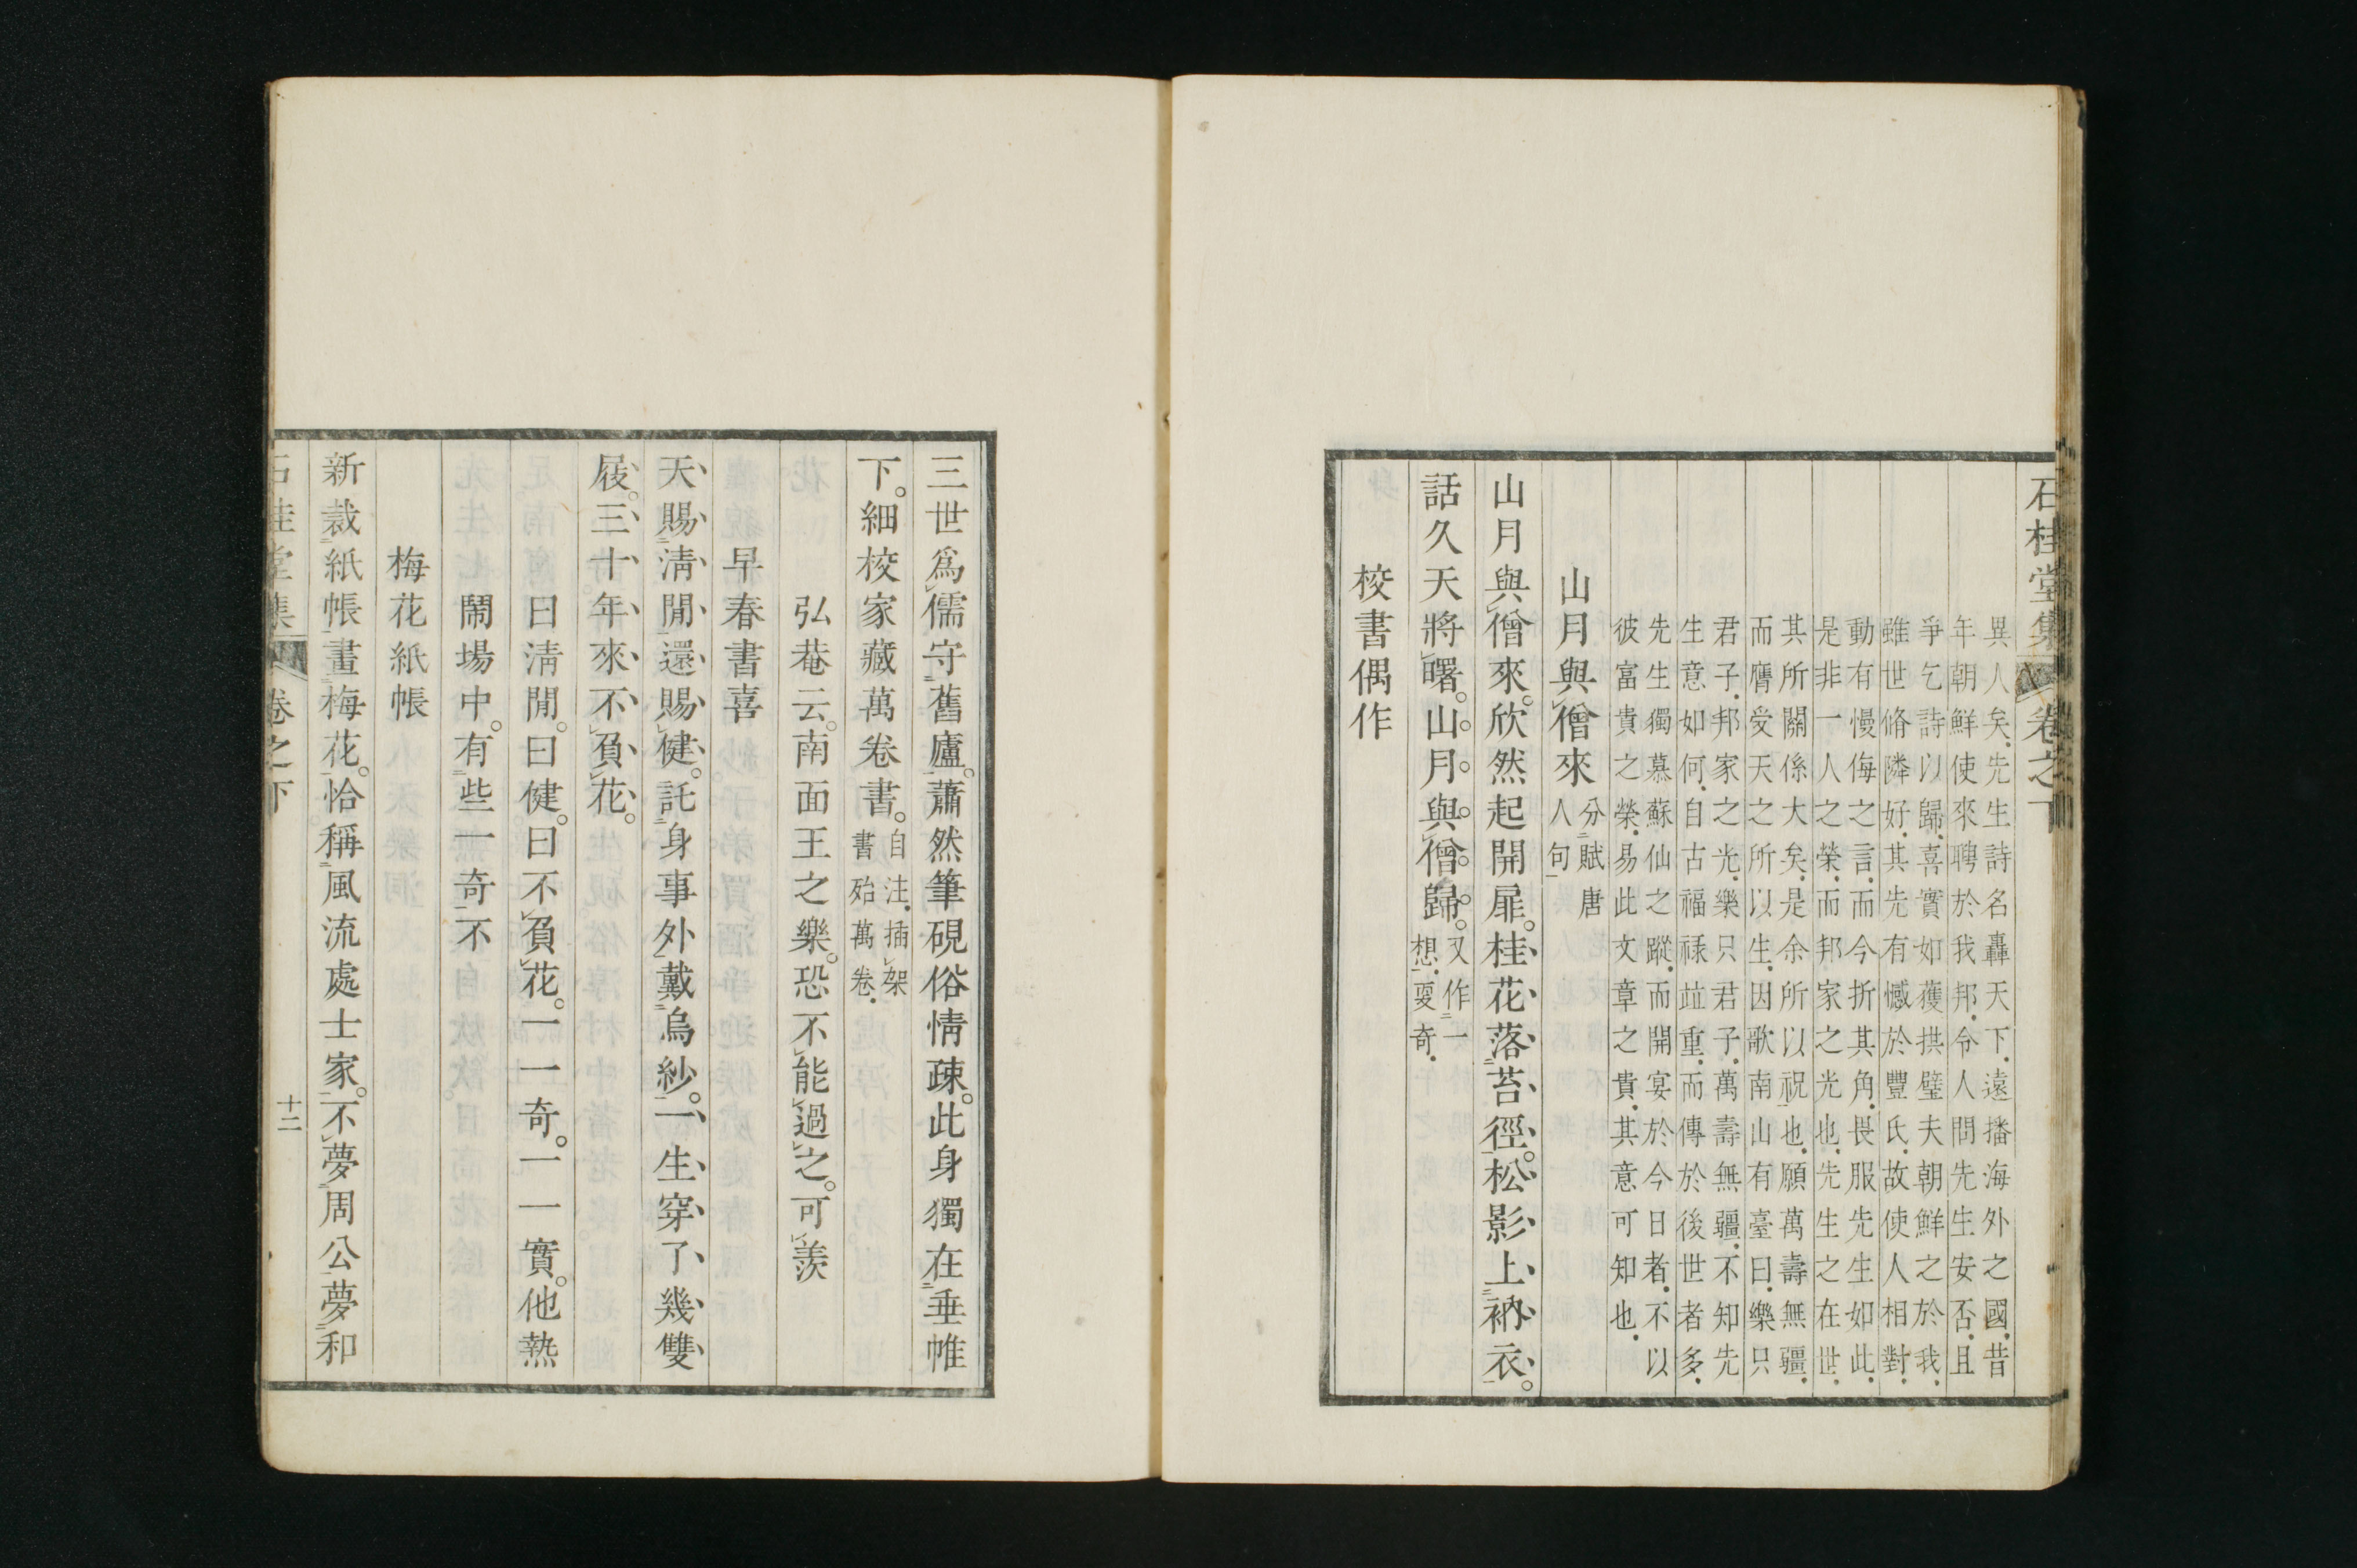 石桂堂集 卷之下
異人矣.先生詩名轟天下.遠播海外之國.昔
年朝鮮使來聘於我邦.令人問先生安否.且
爭乞詩以歸.喜實如獲拱璧夫朝鮮之於我.
雖世脩隣好.其先有憾於豐氏.故使人相對.
動有慢侮之言.而今折其角.畏服先生如此.
是非一人之榮.而邦家之光也.先生之在世.
其所關係大矣.是余所以祝也.願萬壽無疆.
而膺受天之所以生.因歌南山有臺曰.樂只
君子.邦家之光.樂只君子.萬壽無疆.不知先
生意如何.自古福祿竝重.而傳於後世者多.
先生獨慕蘇仙之蹤.而開宴於今日者.不以
彼富貴之榮.易此文章之貴.其意可知也.
山月與僧來 分賦唐
人句
山月與僧來。欣然起開扉。桂花落苔徑。松影上衲衣。
話久天將曙。山月與僧歸。又作一
想.更奇.
校書偶作
三世爲儒守舊廬。蕭然筆硯俗情疎。此身獨在垂帷
下。細校家藏萬卷書。自注.插架
書殆萬卷.
弘菴云。南面王之樂。恐不能過之。可羨
早春書喜
天賜淸閒還賜健。託身事外戴烏紗。一生穿了幾雙
屐。三十年來不負花。
曰淸閒。曰健。曰不負花。一一奇。一一實。他熱
鬧場中。有些一奇不
梅花紙帳
新裁紙帳畫梅花。恰稱風流處士家。不夢周公夢和
石桂堂集 卷之下 十二